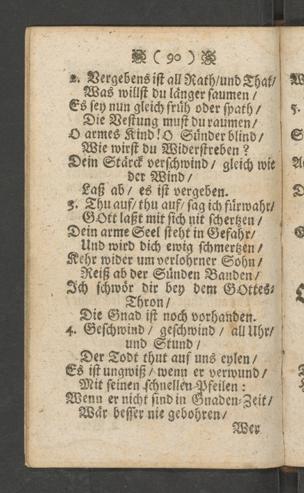 ( 90 )
2. Vergebens ist all Rath/und That/
Was willst du länger saumen/
Es sey nun gleich früh oder spath/
Die Vestung must du raumen/
O armes Kind! O Sünder blind/
Wie wirst du Widerstreben?
Dein Stärck verschwind/ gleich wie
der Wind/
Laß ab/ es ist vergeben.
3. Thu auf/ thu auf/ sag ich fürwahr/
GOtt laßt mit sich nit schertzen/
Dein arme Seel steht in Gefahr/
Und wird dich ewig schmertzen/
Kehr wider um verlohrner Sohn/
Reiß ab der Sünden Banden/
Ich schwör dir bey dem GOttes-
Thron/
Die Gnad ist noch vorhanden.
4. Geschwind/ geschwind/ all Uhr/
und Stund/
Der Todt thut auf uns eylen/
Es ist ungwiß/ wenn er verwund/
Mit seinen schnellen Pfeilen:
Wenn er nicht sind in Gnaden-Zeit/
Wär besser nie gebohren/
Wer